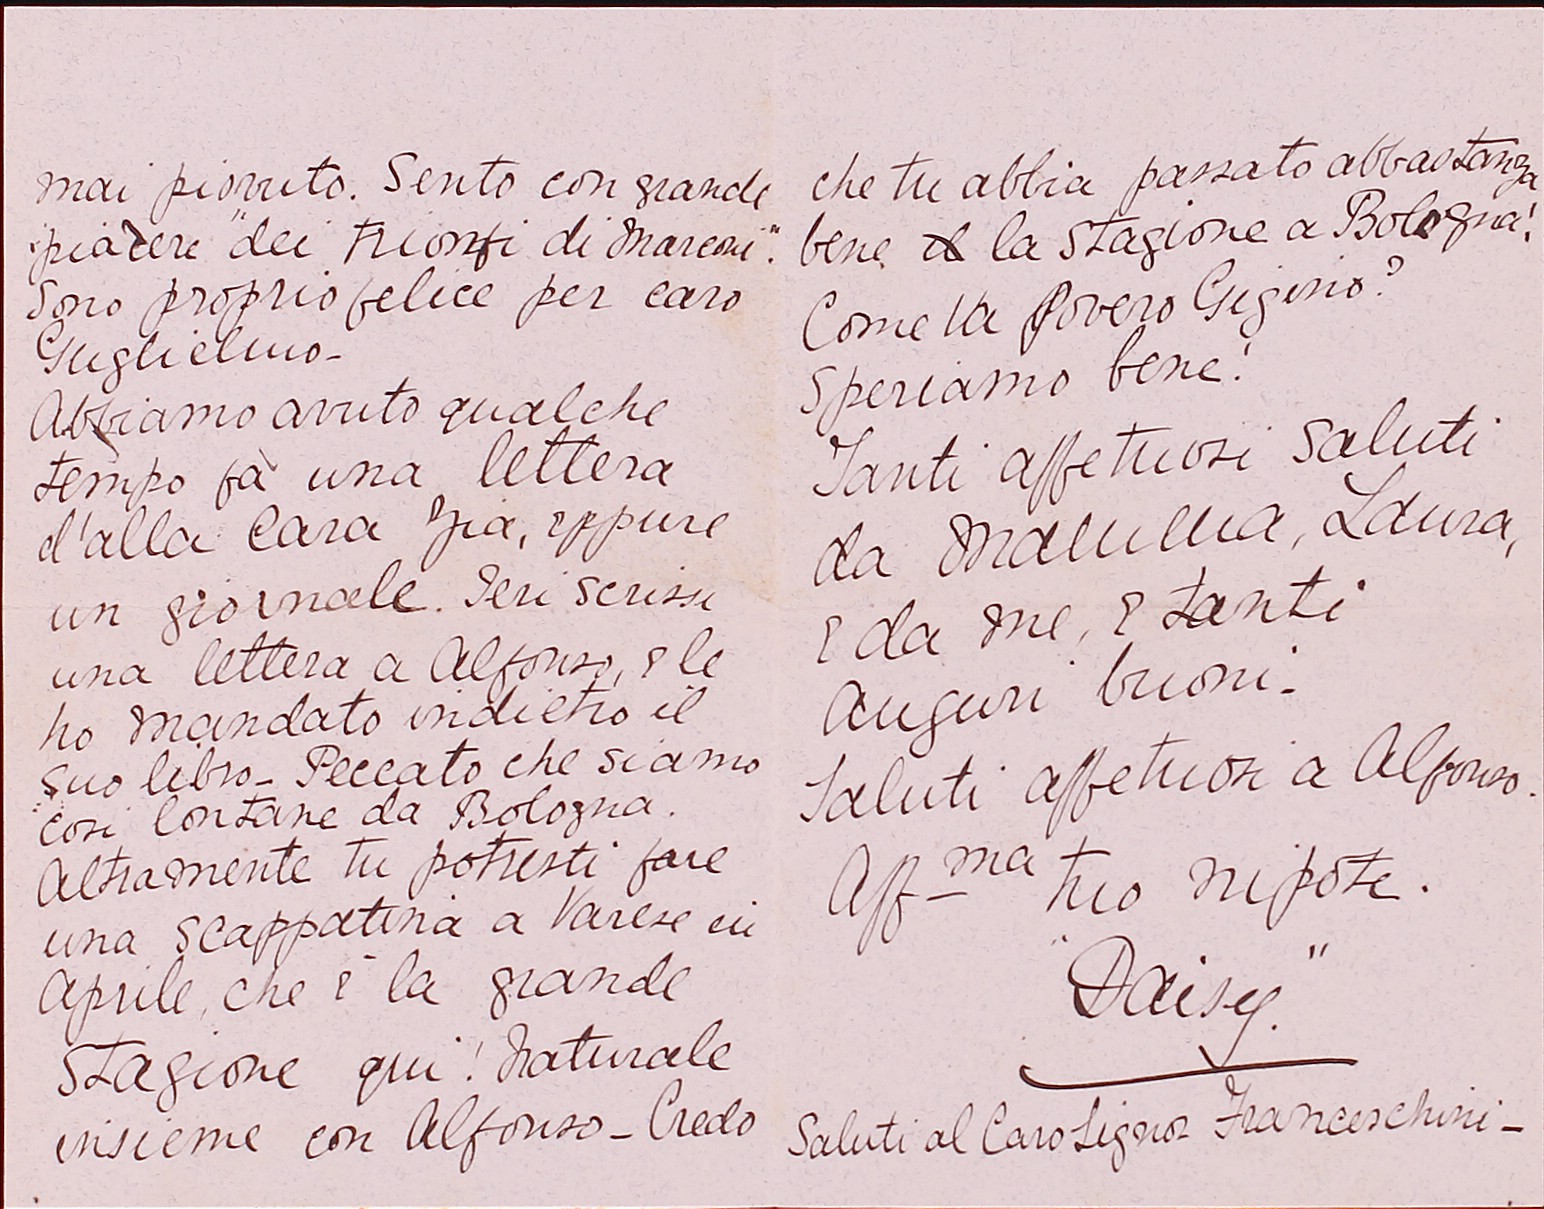 mai piovuto. Sento con grande
piacere "dei trionfi di Marconi".
Sono proprio felice per caro
Guglielmo -
Abbiamo avuto qualche
tempo fà una lettera
d'alla Cara Zia, eppure
un giornale. Ieri scrissi
una lettera a Alfonso, e le
ho mandato indietro il
suo libro - Peccato che siamo
cosi lontane da Bologna.
Altramente tu potresti fare
una scappatina a Varese in
Aprile, che è la grande
stagione qui! Naturale
insieme con Alfonso - Credo
che tu abbia passato abbastanza
bene la stagione a Bologna!
Come va Povero Gigino?
Speriamo bene!
Tanti affetuosi saluti
da Mamma, Laura,
e da me, e tanti
auguri buoni -
Saluti affetuosi a Alfonso.
Aff-ma tuo nipote.
"Daisy."
Saluti al Caro Signor Franceschini -